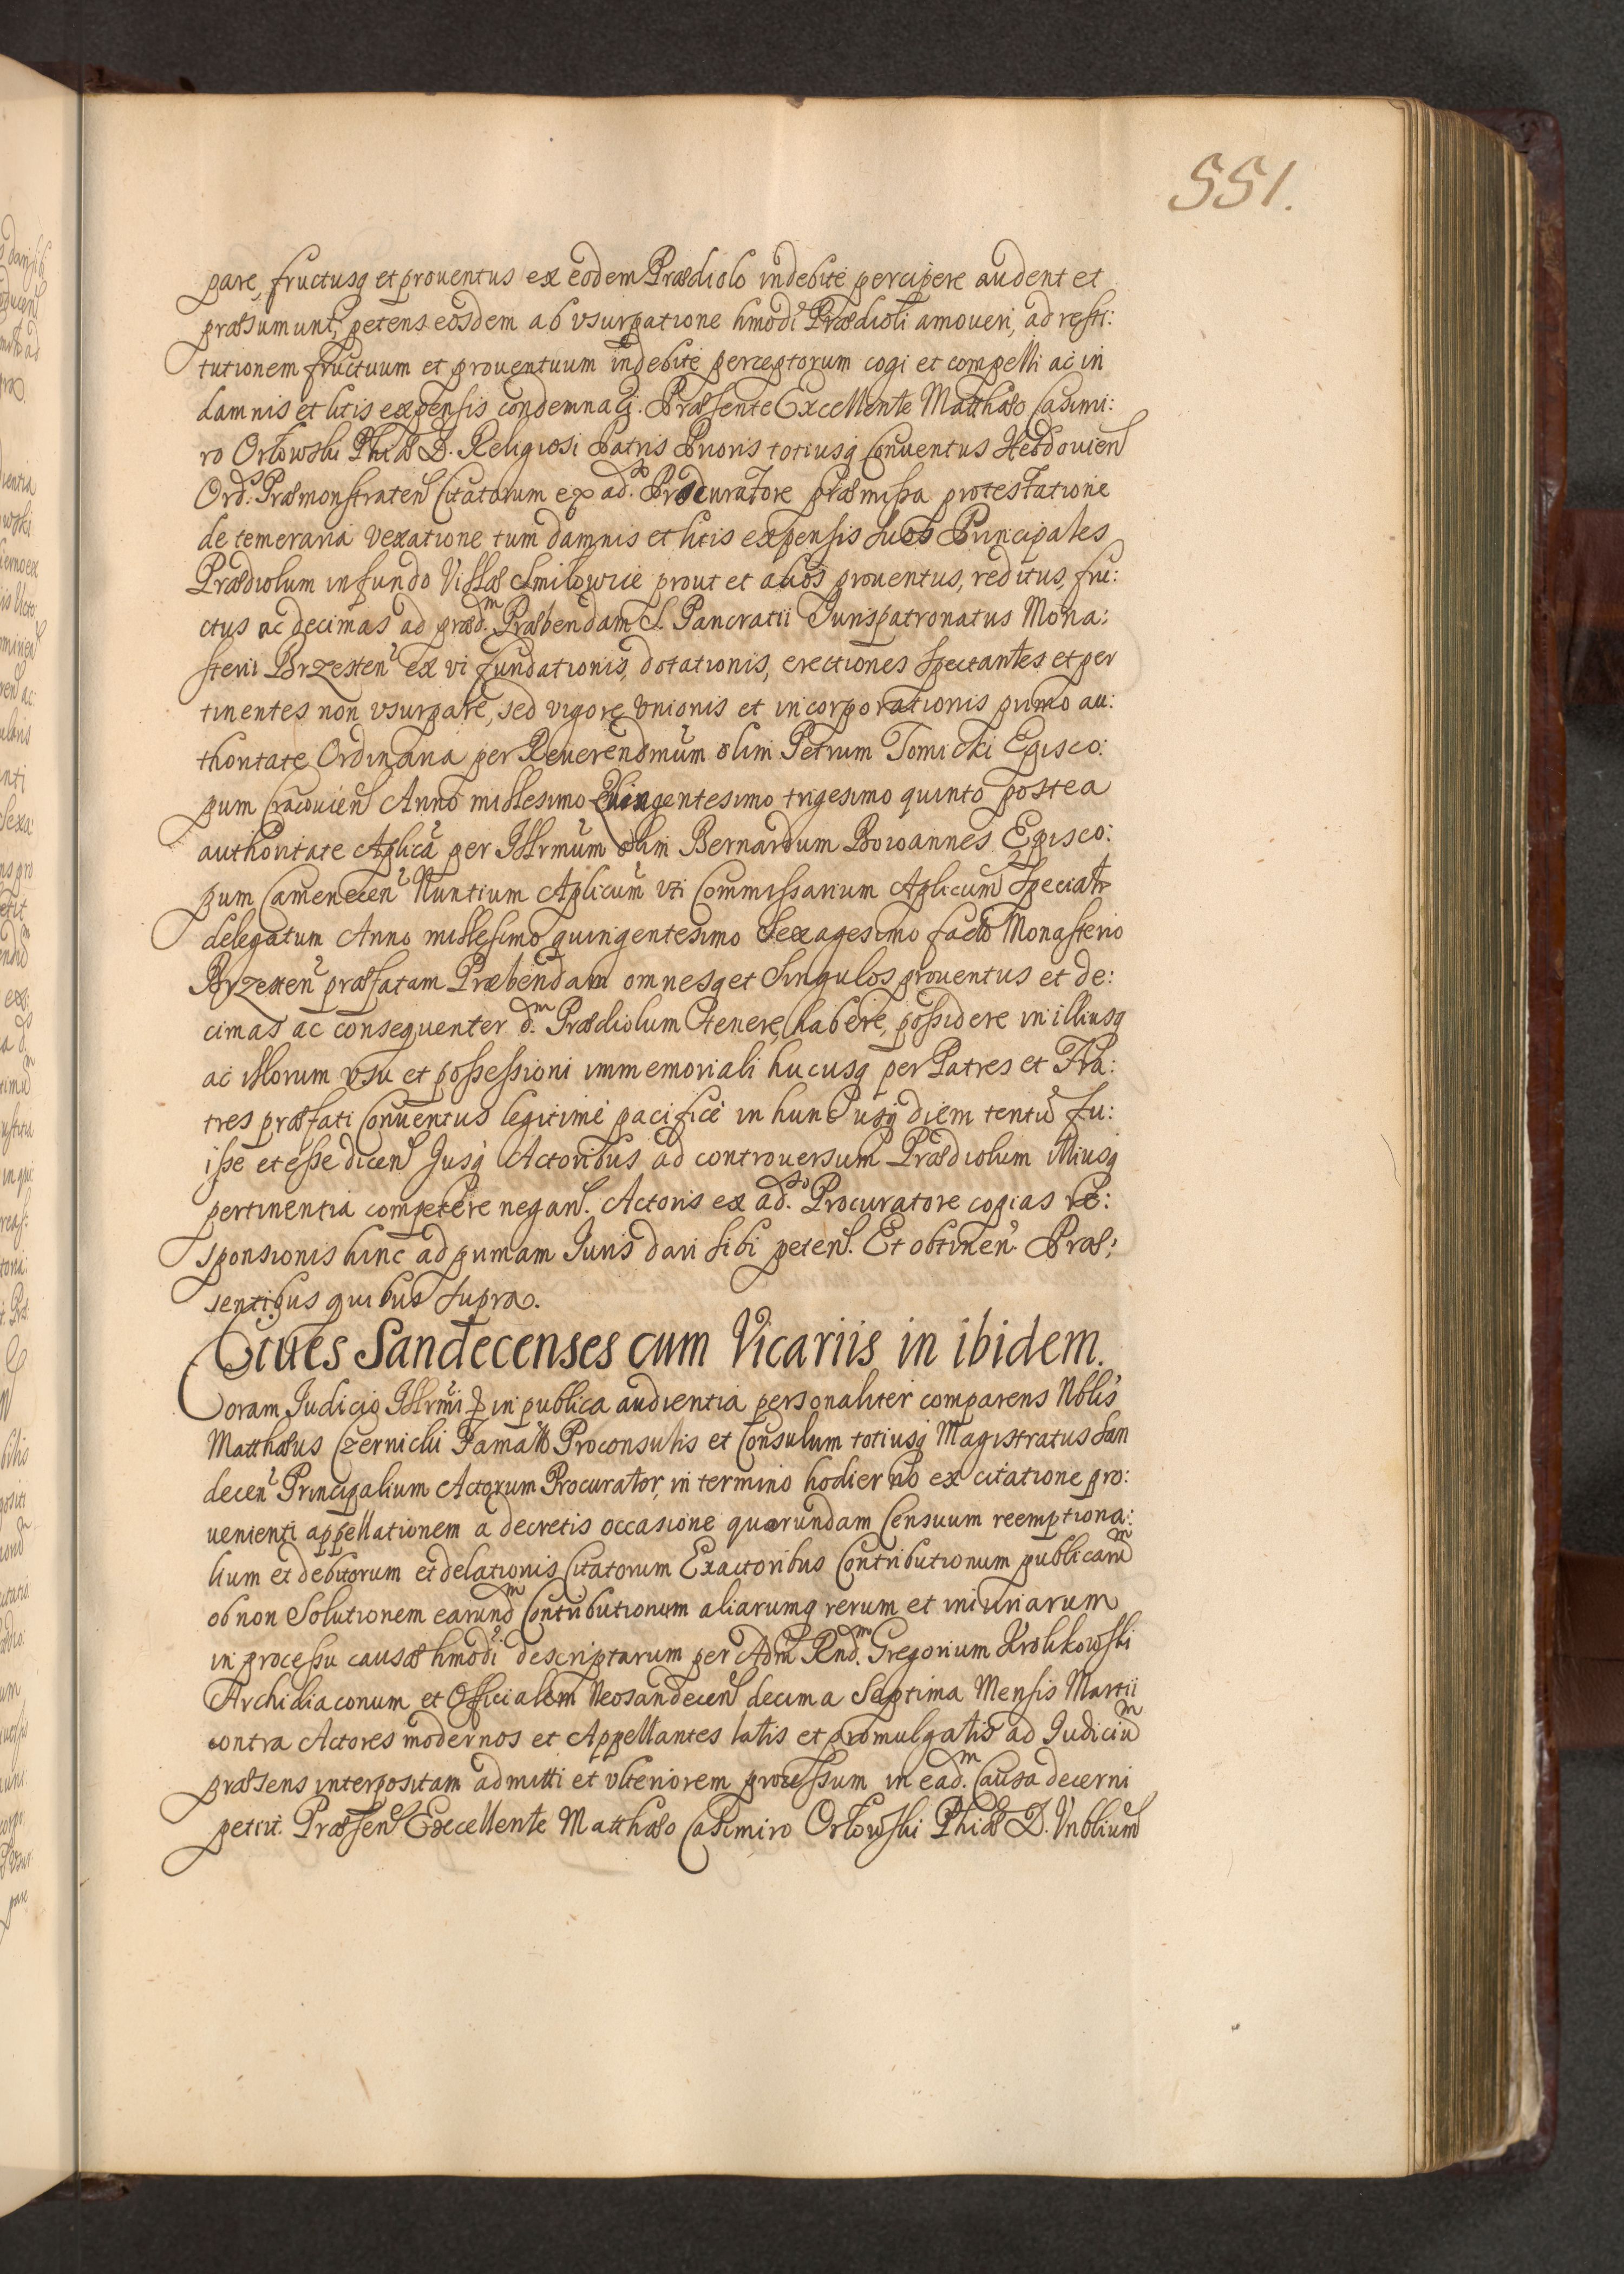 551.
pare, fructusq et prouentus ex eodem Prædiolo indebitè percipere audent et
præsumunt, petens eosdem ab vsurpatione hmodi Prædioli amoueri, ad resti:
tutionem fructuum et prouentuum indebitè perceptorum cogi et compelli ac in
damnis et litis expensis condemnari. Præsente Excellente Matthæo Casimi:
ro Orłowski Phiæ D. Religiosi Patris Prioris totiusq Conuentus Hebdouien
Ord.s Præmonstraten Citatorum ex ad.so Procuratore præmissa protestatione
de temeraria vexatione tum damnis et litis expensis suos Principales
Prædiolum in fundo Villæ Smiłowice prout et alios prouentus, reditus, fru:
ctus ac decimas ad præd.m Præbendam S. Pancratii Jurispatronatus Mona:
sterii Brzesten ex vi fundationis, dotationis, erectiones spectantes et per
tinentes non vsurpare, sed vigore vnionis et incorporationis primo au:
thoritate Ordinaria per Reuerendmum olim Petrum Tomicki Episco:
pum Cracouien Anno millesimo Quingentesimo trigesimo quinto postea
authoritate Aplica per Illrmum olim Bernardum Bouoannes Episco:
pum Camenecen Nuntium Aplicum vti Commissarium Aplicum Specialr
delegatum Anno millesimo quingentesimo Sexagesimo facto Monasterio
Brzesten præfatam Præbendam omnesq et Singulos prouentus et de:
cimas ac consequenter d.m Prædiolum tenere, habere, possidere in illiusq
ac illorum vsu et possessioni immemoriali hucusq per Patres et Fra:
tres præfati Conuentus legitimè pacificè in hunc usq diem tentu fu:
isse et esse dicen Jusq Actoribus ad controuersum Prædiolum illiusq
pertinentia competere negan. Actoris ex ad.so Procuratore copias re:
sponsionis hinc ad primam Juris dari sibi peten. Et obtinen. Præ:
sentibus quibus supra.
Ciues Sandecenses cum Vicariis in ibidem.
Coram Judicio Illrmi & in publica audientia personaliter comparens Nblis
Matthæus Czernicki Famatt Proconsulis et Consulum totiusq Magistratus San
decen Principalium Actorum Procurator, in termino hodierno ex citatione pro:
uenienti appellationem a decretis occasione quorundam Censuum reemptiona:
lium et debitorum et delationis Citatorum Exactoribus Contributionum publicaru
ob non Solutionem earund.m Contributionum aliarumq rerum et iniuriarum
in processu causæ hmodi descriptarum per Adm Rnd.m Gregorium Krolikowski
Archidiaconum et Officialem Neosandecen decima Septima Mensis Martii
contra Actores modernos et Appellantes latis et promulgatis ad Judiciu
præsens interpositam admitti et vlteriorem processum in ead.m Causa decerni
petiit. Præsen Excellente Matthæo Casimiro Orłowski Phiæ D. Vnblium